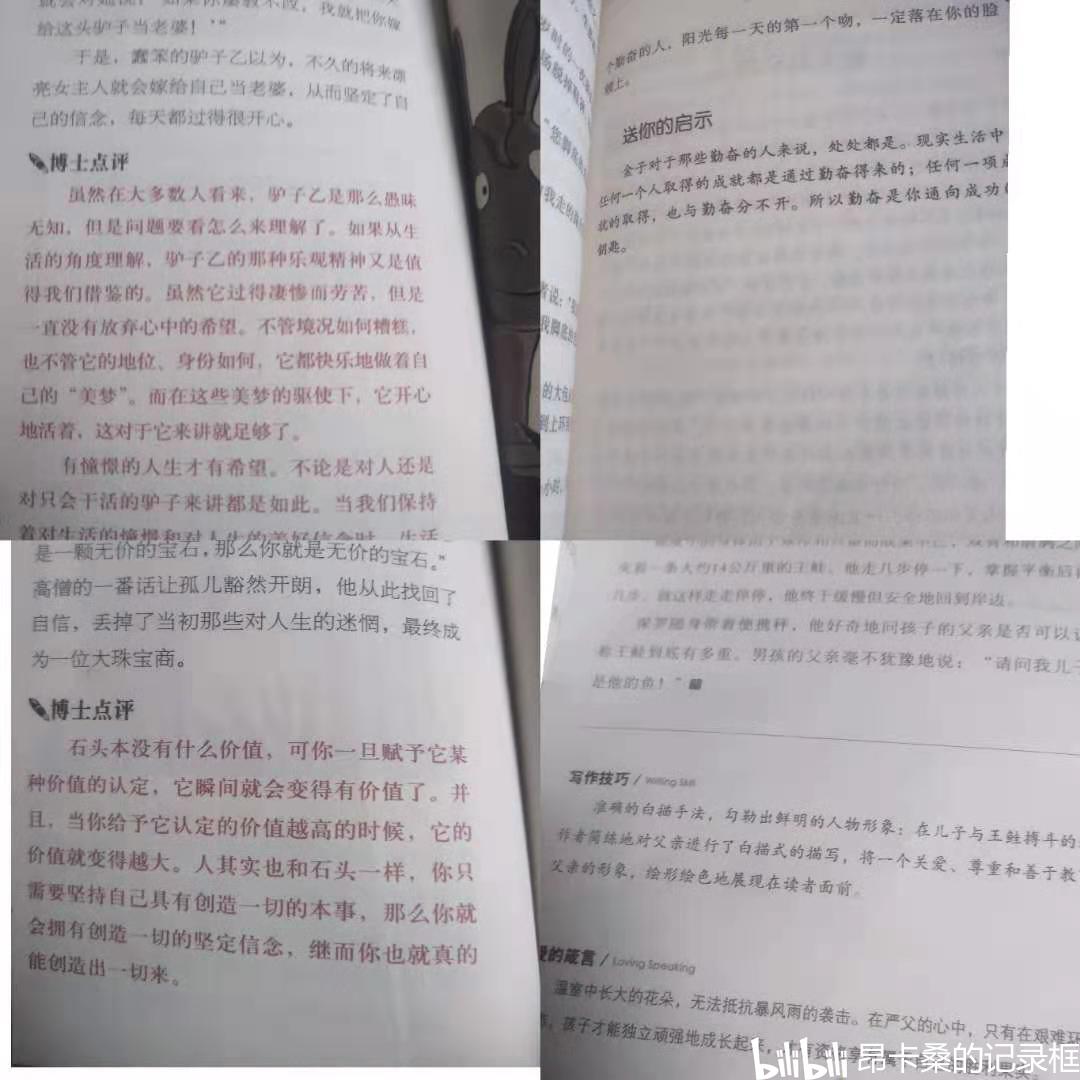 给这头驴子当老婆！'"
于是，蠢笨的驴子乙以为，不久的将来漂
亮女主人就会嫁给自己当老婆，从而坚定了自
己的信念，每天都过得很开心。
博士点评
虽然在大多数人看来，驴子乙是那么愚昧
无知，但是问题要看怎么来理解了。如果从生
活的角度理解，驴子乙的那种乐观精神又是值
得我们借鉴的。虽然它过得凄惨而劳苦，但是
一直没有放弃心中的希望。不管境况如何糟糕，
也不管它的地位、身份如何，它都快乐地做着自
己的“美梦”。而在这些美梦的驱使下，它开心
地活着，这对于它来讲就足够了。
有憧憬的人生才有希望。不论是对人还是
对只会干活的驴子来讲都是如此。当我们保持
着对生活的憧憬和对人生的美好信念时，生活
个勤奋的人，阳光每一天的第一个吻，一定落在你的脸
颊上。
送你的启示
金子对于那些勤奋的人来说，处处都是。现实生活中
任何一个人取得的成就都是通过勤奋得来的；任何一项成
就的取得，也与勤奋分不开。所以勤奋是你通向成功
钥匙。
是一颗无价的宝石，那么你就是无价的宝石。”
高僧的一番话让孤儿豁然开朗，他从此找回了
自信，丢掉了当初那些对人生的迷惘，最终成
为一位大珠宝商。
博士点评
石头本没有什么价值，可你一旦赋予它某
种价值的认定，它瞬间就会变得有价值了。并
且，当你给予它认定的价值越高的时候，它的
价值就变得越大。人其实也和石头一样，你只
需要坚持自己具有创造一切的本事，那么你就
会拥有创造一切的坚定信念，继而你也就真的
能创造出一切来。
夹着一条大约14公斤重的王鲑。他走几步停一下，掌握平衡后再
几步。就这样走走停停，他终于缓慢但安全地回到岸边。
保罗随身带着便携秤，他好奇地问孩子的父亲是否可以
称王鲑到底有多重。男孩的父亲毫不犹豫地说：“请问我儿子
是他的鱼！”
写作技巧 / Writing Skill
准确的白描手法，勾勒出鲜明的人物形象：在儿子与王鲑搏斗的
作者简练地对父亲进行了白描式的描写，将一个关爱、尊重和善于教
父亲的形象，绘形绘色地展现在读者面前。
爱的箴言 / Loving Speaking
温室中长大的花朵，无法抵抗暴风雨的袭击。在严父的心中，只有在艰难环
孩子才能独立顽强地成长起来，
bilibili 昂卡桑的记录框